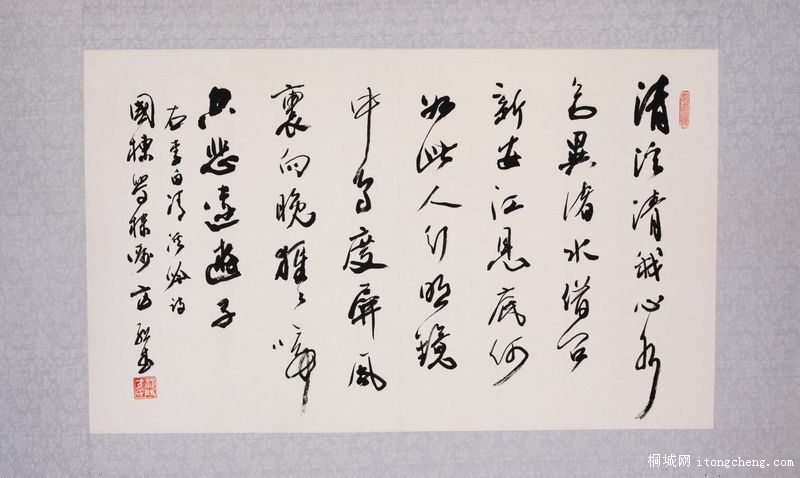 清溪清我心水
色異諸水借問
新安江見底何
如此人行明鏡
中鳥度屏風
裏向晚猩々啼
空悲遠遊子
右李白清溪吟詩
國棟學棣囑 方
桐城网 itongcheng.com